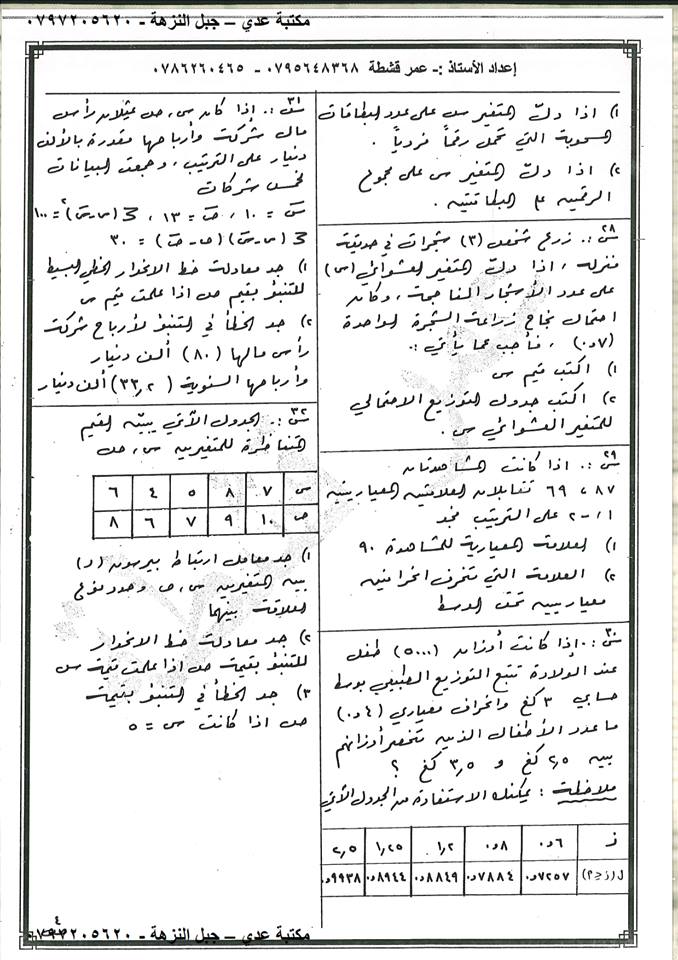 مكتبة عدي – جبل النزهة - ٠٧٩٧٢٠٥٦٢٠
إعداد الأستاذ :- عمر قشطة ٠٧٩٥٦٤٨٣٦٨ - ٠٧٨٦٢٦٠٤٦٥
١) اذا دلّ المتغير س على عدد البطاقات
المسحوبة التي تحمل رقماً فردياً .
٢) اذا دلّ المتغير س على مجموع
الرقمين على البطاقتين .
س٢٨ :. زرع شخص (٣) شجرات في حديقة
منزله ، اذا دلّ المتغير العشوائي (س)
على عدد الأشجار الناجحة ، وكان
احتمال نجاح زراعة الشجرة الواحدة
(٠,٧) ، فأجب عما يأتي :
١) اكتب قيم س
٢) اكتب جدول التوزيع الاحتمالي
للمتغير العشوائي س .
س٢٩ :. اذا كانت المشاهدتان
٨٧ ، ٦٩ تقابلان العلامتين المعياريتين
١ ، -٢ على الترتيب فجد
١) العلامة المعيارية للمشاهدة ٩٠
٢) العلامة التي تنحرف انحرافين
معياريين تحت الوسط
س٣٠ :. إذا كانت أوزان (٥٠٠٠) طفل
عند الولادة تتبع التوزيع الطبيعي بوسط
حسابي ٣ كغ وانحراف معياري (٠,٤)
ما عدد الأطفال الذين تنحصر أوزانهم
بين ٢,٥ كغ و ٣,٥ كغ ؟
ملاحظة : يمكنك الاستفادة من الجدول الآتي
ز ٠,٦ ٠,٨ ١,٢ ١,٢٥ ٢,٥
ل(ز≤أ) ٠,٧٢٥٧ ٠,٧٨٨٤ ٠,٨٨٤٩ ٠,٨٩٤٤ ٠,٩٩٣٨
س٣١ :. إذا كان س ، ص يمثلان رأس
مال شركة وأرباحها مقدرة بالألف
دينار على الترتيب ، وجمعت البيانات
لخمس شركات
س̄ = ١٠ ، ص̄ = ١٣ ، Σ(س-س̄)² = ١٠٠
Σ(س-س̄)(ص-ص̄) = ٣٠
١) جد معادلة خط الانحدار الخطي البسيط
للتنبؤ بقيم ص اذا علمت قيم س
٢) جد الخطأ في التنبؤ لأرباح شركة
رأس مالها (٨٠) ألف دينار
وأرباحها السنوية (٣٣,٢) ألف دينار
س٣٢ :. الجدول الآتي يبيّن القيم
المتناظرة للمتغيرين س ، ص
س ٧ ٨ ٥ ٤ ٦
ص ١٠ ٩ ٧ ٦ ٨
١) جد معامل ارتباط بيرسون (ر)
بين المتغيرين س ، ص وحدد نوع
العلاقة بينهما
٢) جد معادلة خط الانحدار
للتنبؤ بقيمة ص اذا علمت قيمة س
٣) جد الخطأ في التنبؤ بقيمة
ص اذا كانت س = ٥
مكتبة عدي – جبل النزهة - ٠٧٩٧٢٠٥٦٢٠